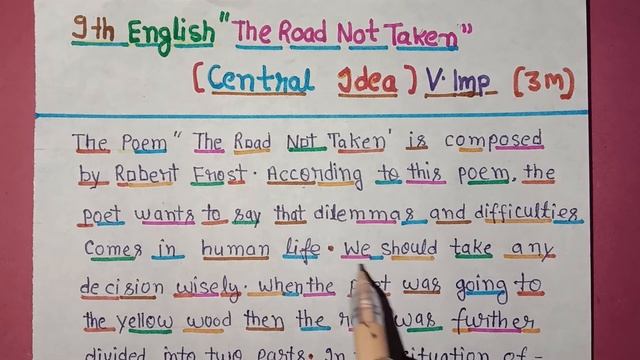 9th English "The Road Not Taken"
(Central Idea) V.Imp (3M)
The Poem " The Road Not Taken' is composed
by Robert Frost. According to this poem, the
poet wants to say that dilemmas and difficulties
comes in human life. We should take any
decision wisely. when the was going to
the yellow wood then the was further
divided into two parts. In situation of-